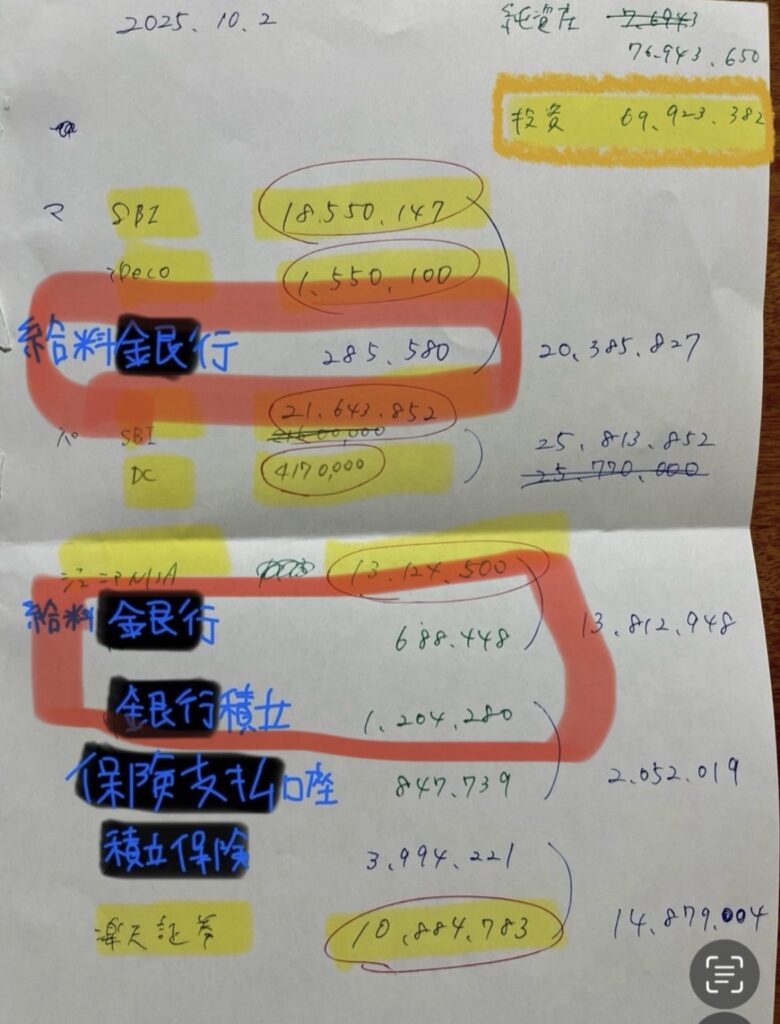 2025.10.2
純資産 7.6943
76.943.650
投資 69.923.382
マ SBI 18.550.147
iDeco 1.550.100
給料銀行 285.580 20.385.827
21.643.852
パ SBI 21600,000 25.813.852
DC 4170,000 25.770.000
ジュニアNISA 13.124.500
給料銀行 688.448 13.812.948
銀行積立 1.204.280
保険支払口座 847.739 2.052.019
積立保険 3.994.221
楽天証券 10.884.783 14.879.004